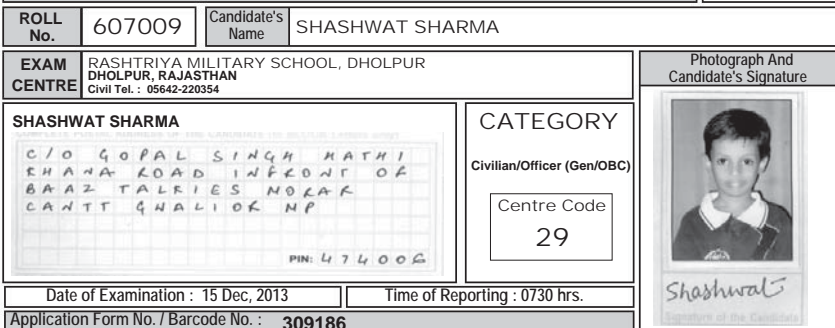 ROLL No. 607009 Candidate's Name SHASHWAT SHARMA
EXAM CENTRE
RASHTRIYA MILITARY SCHOOL, DHOLPUR
DHOLPUR, RAJASTHAN
Civil Tel. : 05642-220354
Photograph And
Candidate's Signature
SHASHWAT SHARMA
C/O GOPAL SINGH HATHI
KHANA ROAD INFRONT OF
BAAZ TALKIES MORAR
CANTT GWALIOR MP
PIN: 474006
CATEGORY
Civilian/Officer (Gen/OBC)
Centre Code
29
Shashwat
Signature of the Candidate
Date of Examination : 15 Dec, 2013
Time of Reporting : 0730 hrs.
Application Form No. / Barcode No. : 309186